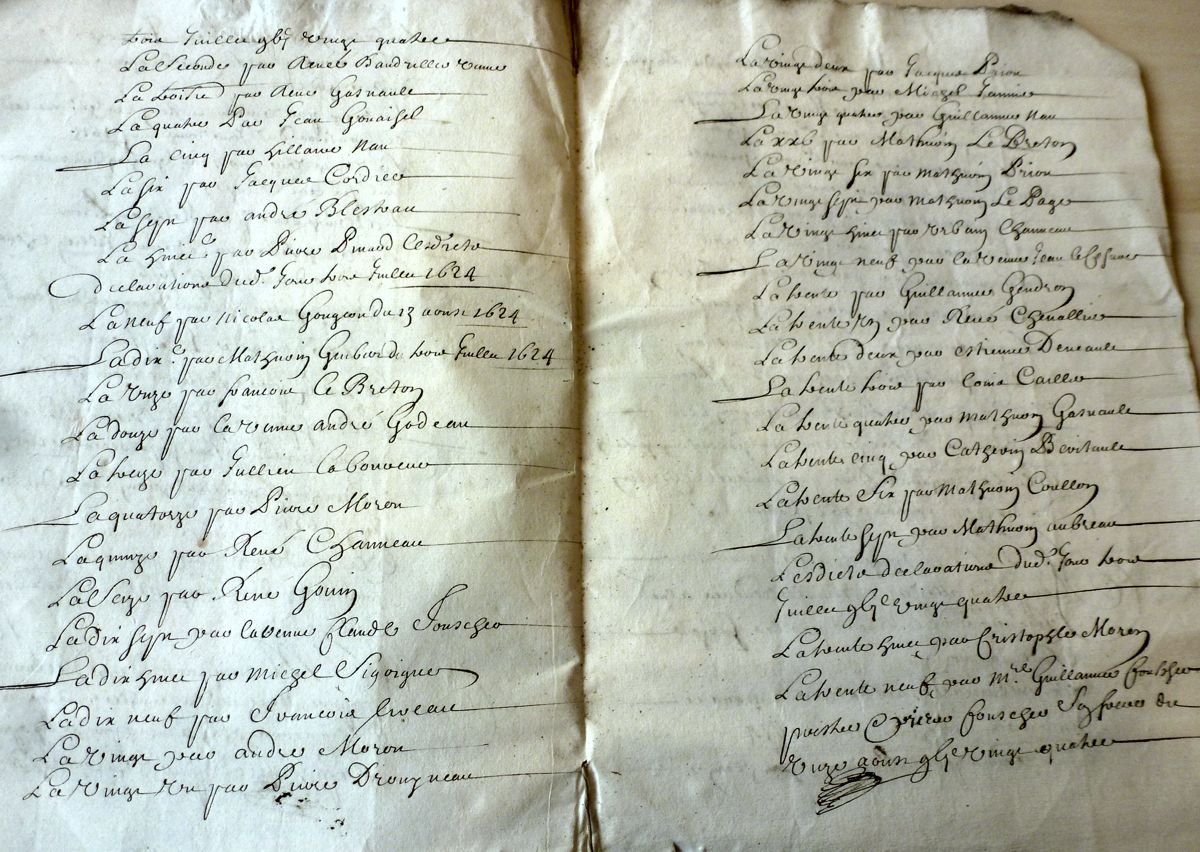 trois Juillet vingt quatre
La Seconde par René Baudriller
La troisie par René Gasnault
La quatre Par Jean Gonaisel
La cinq par hillaire Nau
La six par Jacques Cordier
La sept par andré Blesteau
La huict par Pierre Pinard Lesdicts
declarations dud. Jour trois Juillet 1624
La neuf par Nicolas Gougeon du 13 aoust 1624
La dix par Mathurin du trois Juillet 1624
La unze par francois Le Breton
La douze par la veufve andré Godeau
La treize par Jullien Labonneve
La quatorze par Pierre Moron
La quinze par René Channeau
La Seize par René Gouin
La dix sept par la veufve Claude Fouscher
La dix huict par Michel Sigoigne
La dix neuf par Francois Civeau
La vingt par andré Moron
La vingt un par Pierre Drougneau
La vingt deux par Jacques Prion
La vingt trois par Michel Jannice
La vingt quatre par Guillaume Nau
La xxv par Mathurin Le Breton
La vingt six par Mathurin Prion
La vingt sept par Mathurin Le Page
La vingt huict par Urbain Channeau
La vingt neuf par la veufve Jean
La trente par Guillaume Gendron
La trente un par René Chevallier
La trente deux par Estienne Deneault
La trente trois par Louis Caillier
La trente quatre par Mathurin Gasnault
La trente cinq par Catherin Bevitault
La trente Six par Mathurin Coullon
La trente sept par Mathurin aubreau
Lesdicts declarations dud. Jour trois
Juillet vingt quatre
La trente huict par Cristophle Moron
La trente neuf par Mre Guillaume fouscher
prestre & pierre fouscher Son frere du
unze aoust vingt quatre